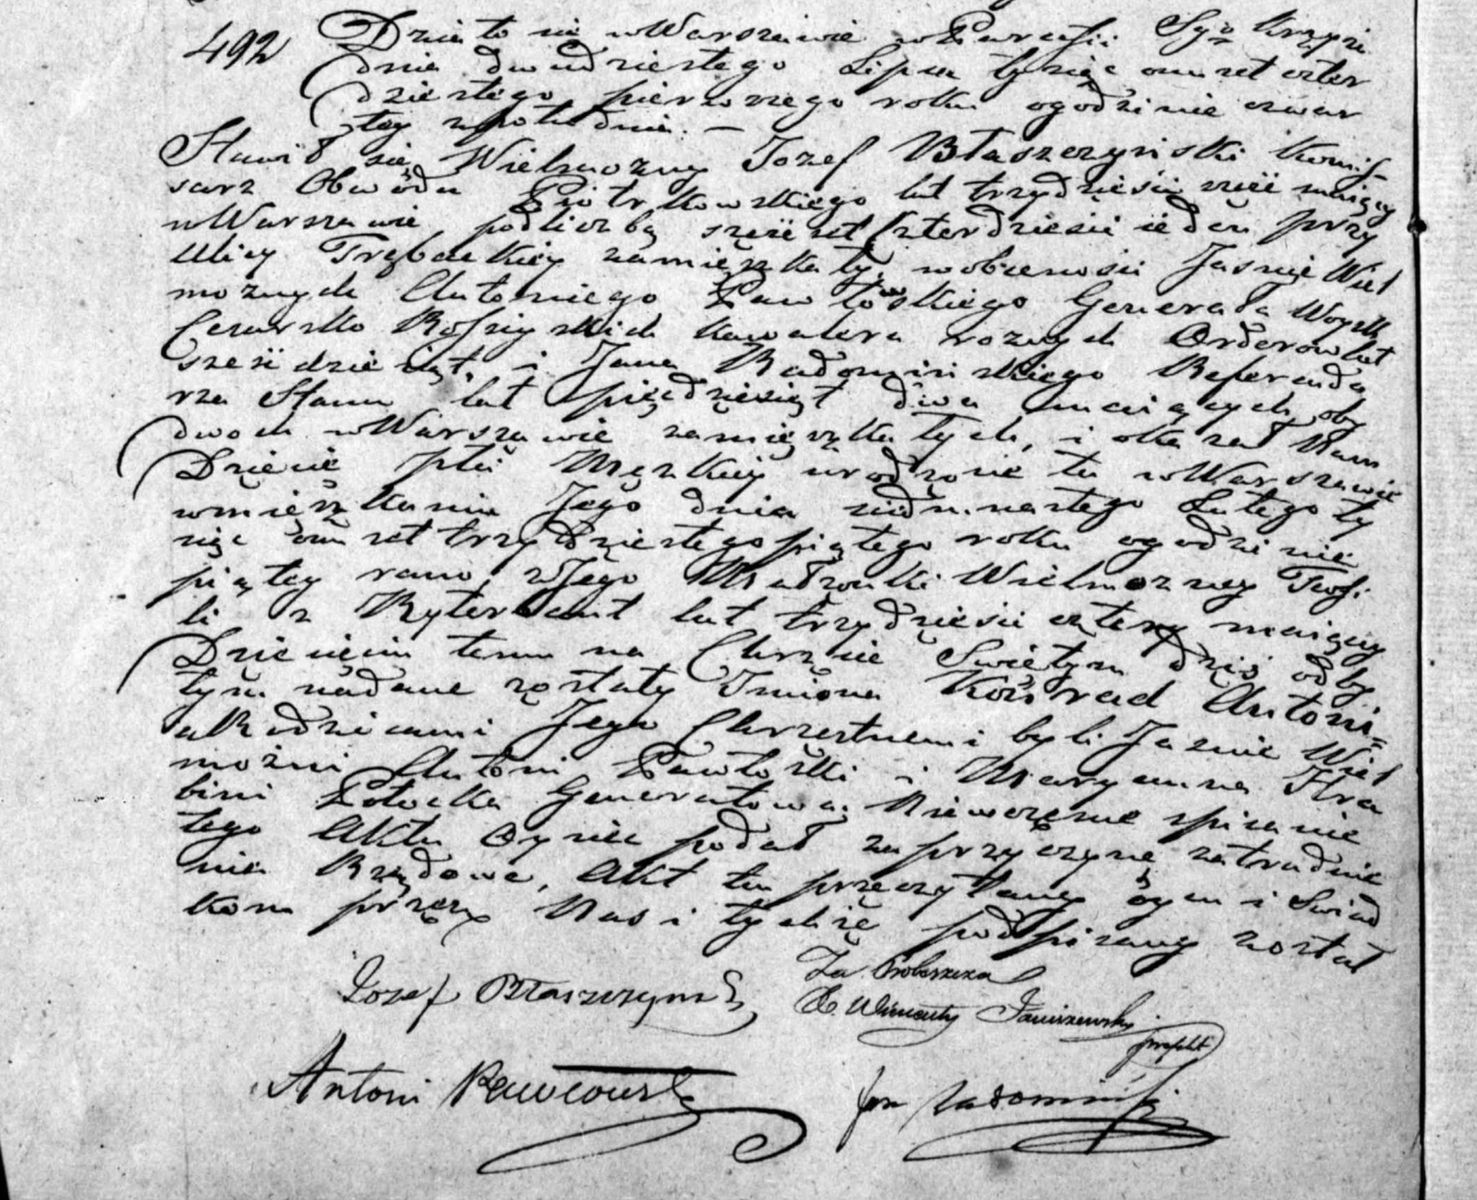 492 Działo się w Warszawie w Parafii Sgo Krzyża
dnia dwudziestego Lipca tysiąc omset czter
dziestego pierwszego roku o godzinie czwar
tey z południa. —
Stawił się Wielmozny Jozef Błaszczyński Komis
sarz Obwodu Piotrkowskiego lat trzydzieści sześć maiący
w Warszawie pod liczbą sześćset czterdzieści ieden przy
Ulicy Trębackiey zamieszkały, w obecności Jasnie Wiel
możnych Antoniego Pawłowskiego Generała Woysk
Cesarsko Rossyiskich Kawalera roznych Orderow lat
sześćdziesiąt, i Jana Radomińskiego Referenda
rza Stanu lat pięćdziesiąt dwa maiących, oby
dwoch w Warszawie zamieszkałych, i okazał Nam
Dziecie płci Męzkiey urodzone tu w Warszawie
w mieszkaniu Jego dnia siedmnastego Lutego ty
siąc omset trzydziestego piątego roku o godzinie
piątey rano, z Jego Małzonki Wielmozney Teofi
li z Ryterbant lat trzydzieści cztery maiącey
Dziecięciu temu na Chrzcie Swiętym dziś odby
tym nadane zostały Imiona Konrad Antoni=
a Rodzicami Jego Chrzestnemi byli Jasnie Wiel
możni Antoni Pawłoski i Maryanna Hra
bini Potocka Generałowa. Niewczesne spisanie
tego Aktu Oyciec podał za przyczynę zatrudnie
nia Rządowe, Akt ten przeczytany oycu i Swiad
kom przez Nas i tychże podpisany został
Jozef Błaszczyński
Za Proboszcza
X. Wincenty Janiszewski
Antoni Pawłowski
Jan Radomiński